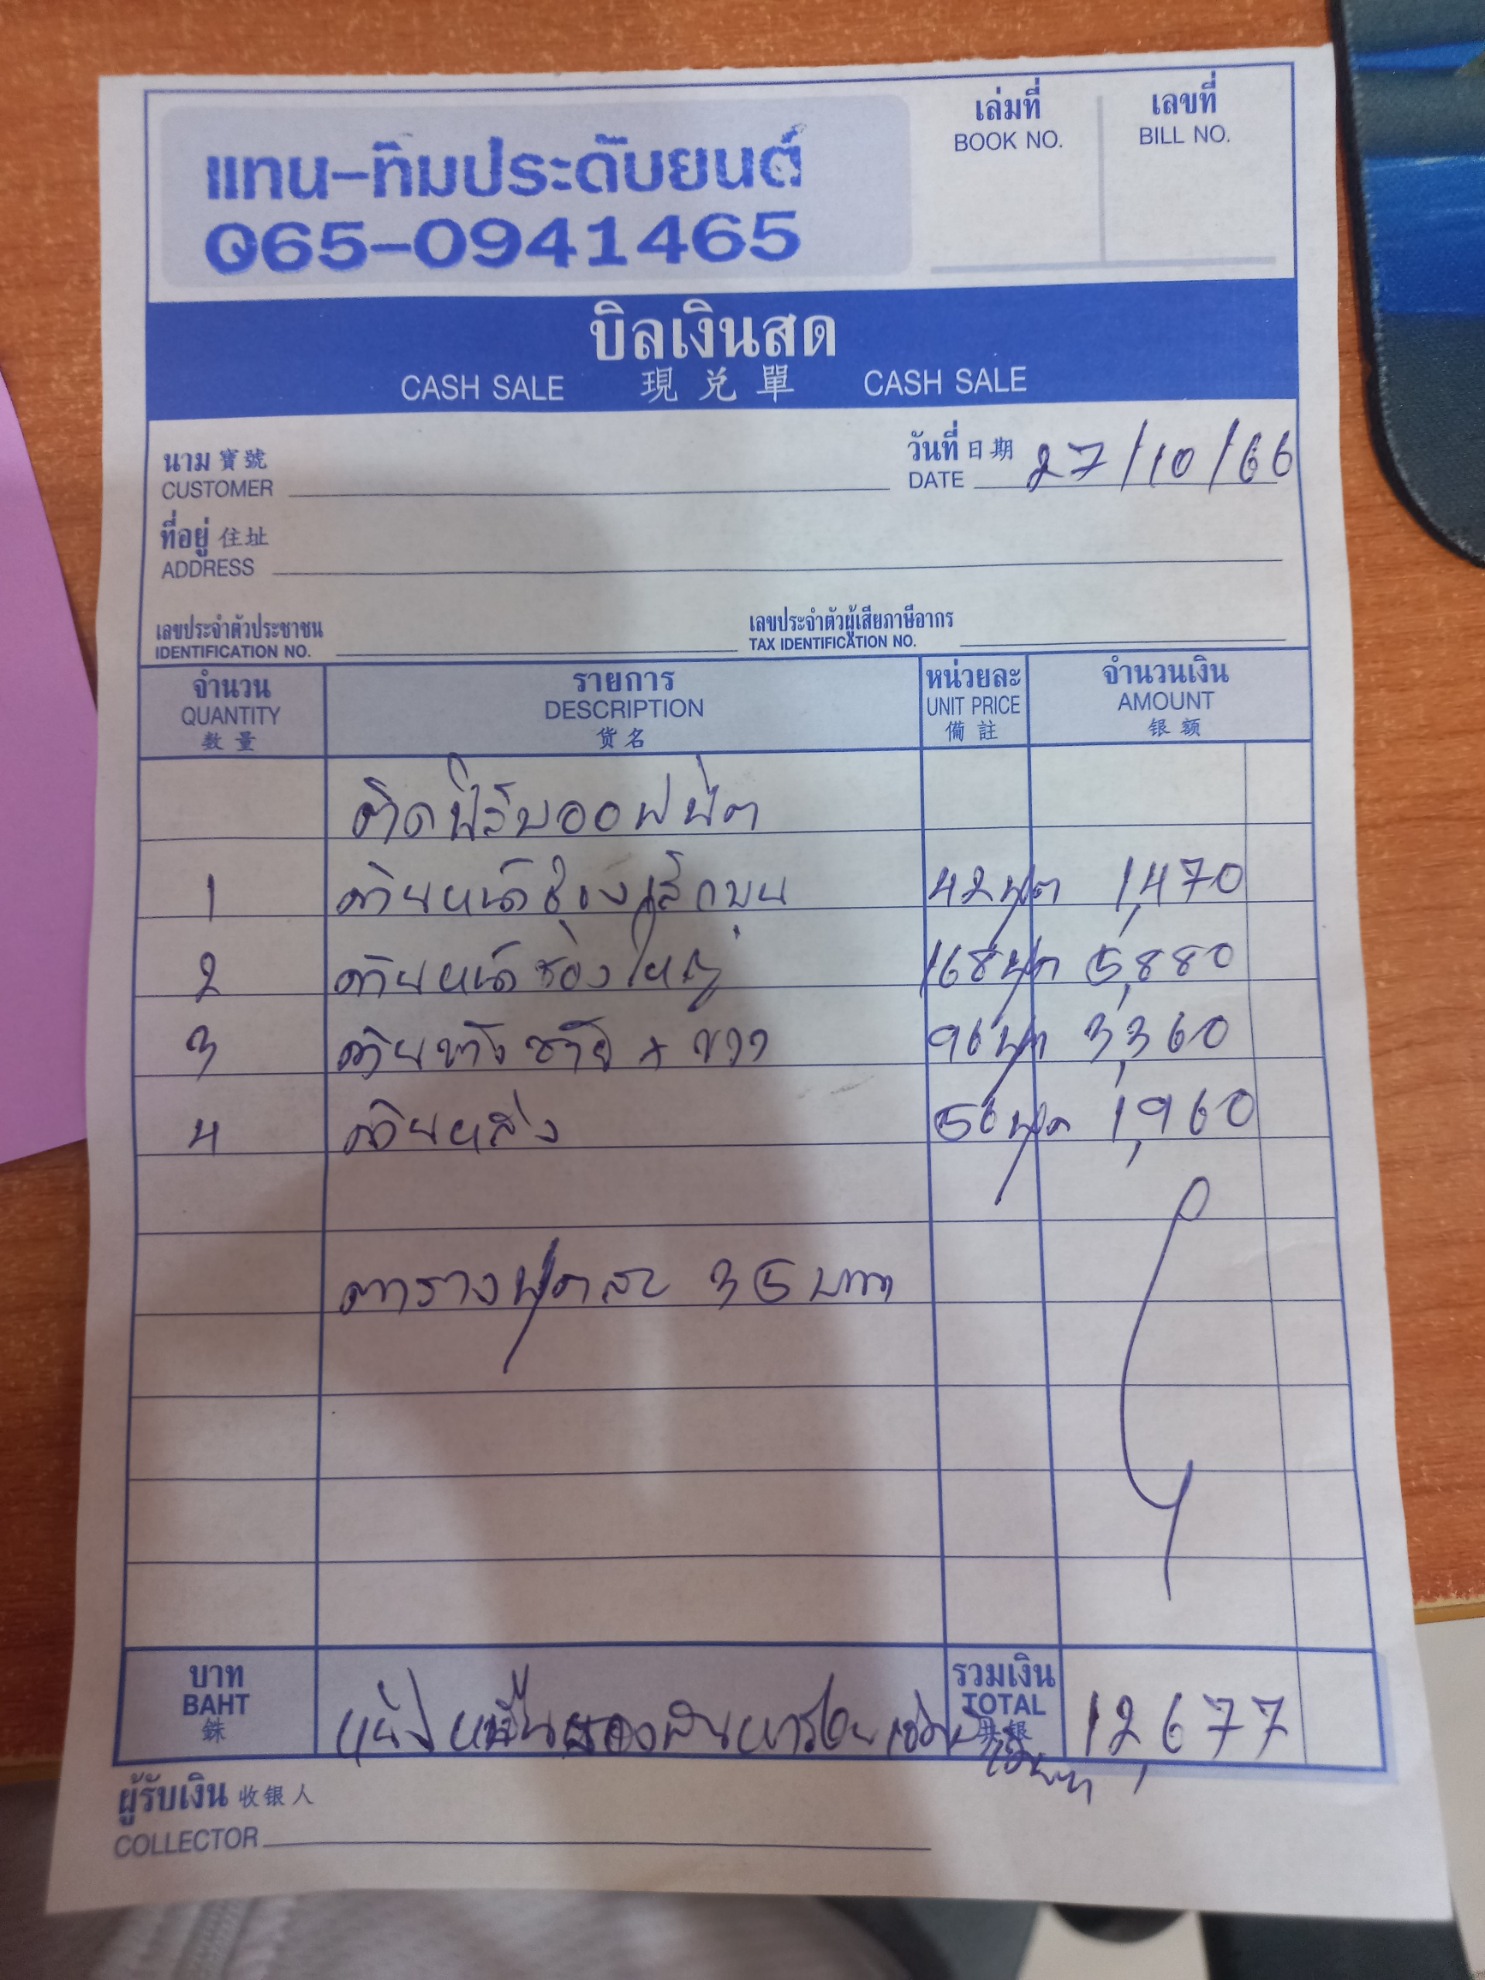 แทน-ทิมประดับยนต์
065-0941465
เล่มที่
BOOK NO.
เลขที่
BILL NO.
บิลเงินสด
CASH SALE 現兑單 CASH SALE
นาม 寶號
CUSTOMER
วันที่ 日期 27/10/66
DATE
ที่อยู่ 住址
ADDRESS
เลขประจำตัวประชาชน
IDENTIFICATION NO.
เลขประจำตัวผู้เสียภาษีอากร
TAX IDENTIFICATION NO.
จำนวน รายการ หน่วยละ จำนวนเงิน
QUANTITY DESCRIPTION UNIT PRICE AMOUNT
数量 货名 備註 银额
ติดฟิล์มออฟฟิต
1 ด้านหน้าช่องเล็กบน 42ฟุต 1,470
2 ด้านหน้าช่องใหญ่ 168ฟุต 5,880
3 ด้านข้างซ้าย + ขวา 96ฟุต 3,360
4 ด้านหลัง 56ฟุต 1,960
ตารางฟุตละ 35 บาท
บาท
BAHT
銖
รวมเงิน
TOTAL
12,677
ผู้รับเงิน 收银人
COLLECTOR